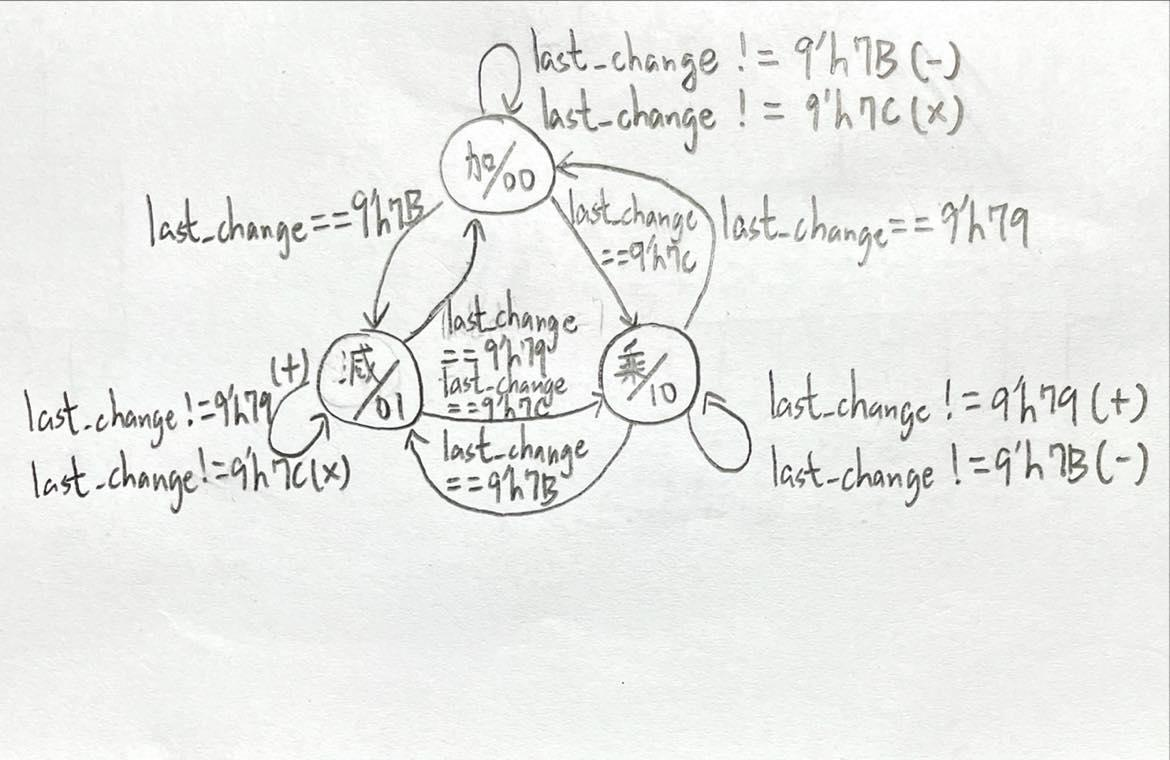 last_change != 9'h7B (-)
last_change != 9'h7C (x)
加/00
last_change==9'h7B
last_change
==9'h7C
last_change==9'h79
last_change
==9'h79
減/01
乘/10
last_change
==9'h7C
last_change !=9'h79(+)
last_change!=9'h7C(x)
last_change
==9'h7B
last_change !=9'h79(+)
last_change !=9'h7B(-)